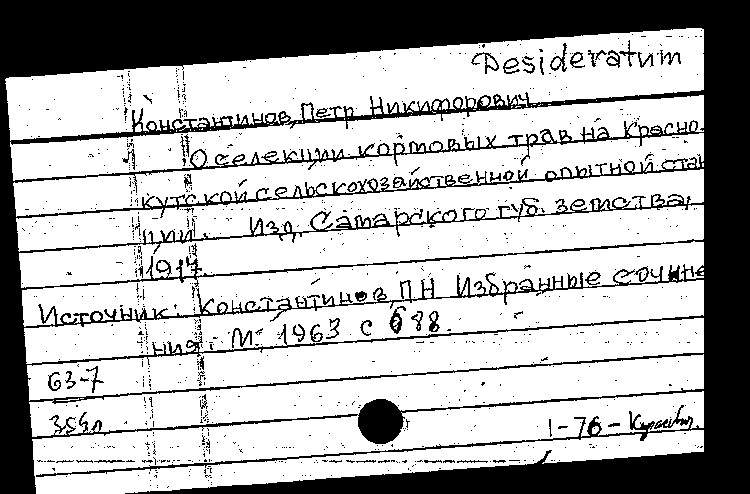 Desideratum
Константинов, Петр Никифорович
О селекции кормовых трав на Красно-
кутской сельскохозяйственной опытной стан
ции. Изд. Самарского губ. земства,
1917
Источник: Константинов, П Н Избранные сочине
ния. М., 1963 с 688.
63-7
1-76-